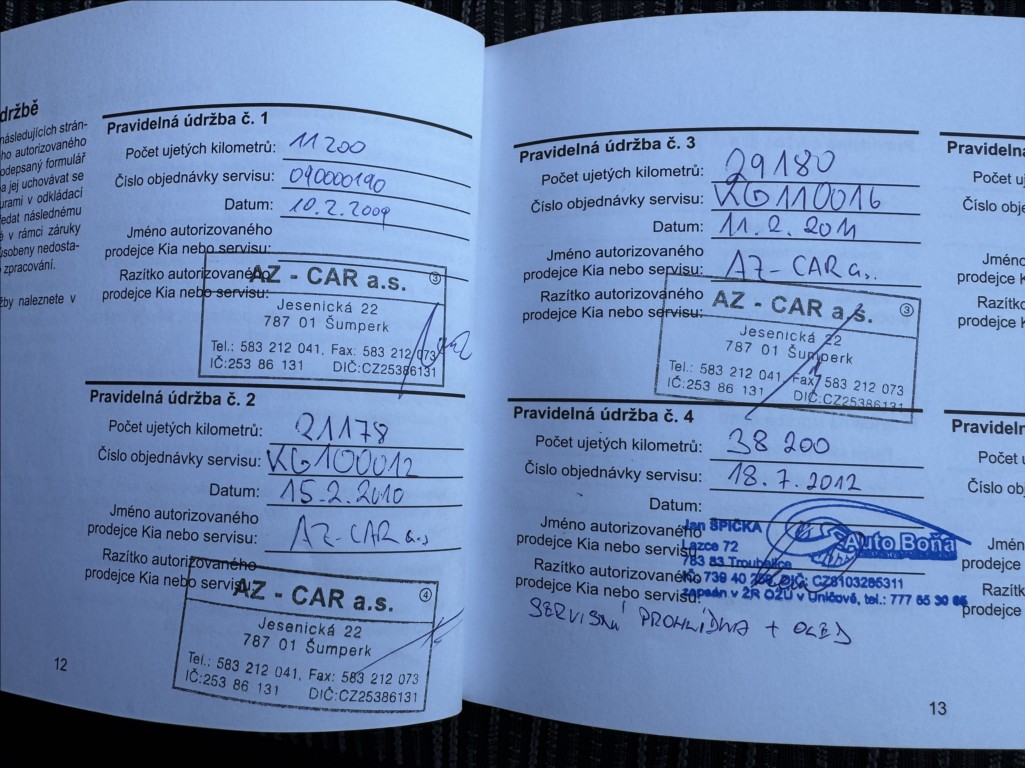 držbě
následujících strán-
ho autorizovaného
odepsaný formulář
a jej uchovávat se
urami v odkládací
ředat následnému
é v rámci záruky
ůsobeny nedosta-
zpracování.
žby naleznete v
Pravidelná údržba č. 1
Počet ujetých kilometrů: 11 200
Číslo objednávky servisu: 090000190
Datum: 10.2.2009
Jméno autorizovaného
prodejce Kia nebo servisu:
Razítko autorizovaného
prodejce Kia nebo servisu:
AZ - CAR a.s. 3
Jesenická 22
787 01 Šumperk
Tel.: 583 212 041, Fax: 583 212 073
IČ:253 86 131 DIČ:CZ25386131
Pravidelná údržba č. 2
Počet ujetých kilometrů: 21178
Číslo objednávky servisu: KG100012
Datum: 15.2.2010
Jméno autorizovaného
prodejce Kia nebo servisu: AZ-CAR a.s
Razítko autorizovaného
prodejce Kia nebo servisu:
AZ - CAR a.s. 4
Jesenická 22
787 01 Šumperk
Tel.: 583 212 041, Fax: 583 212 073
IČ:253 86 131 DIČ:CZ25386131
12
Pravidelná údržba č. 3
Počet ujetých kilometrů: 29180
Číslo objednávky servisu: KG110016
Datum: 11.2.2011
Jméno autorizovaného
prodejce Kia nebo servisu: AZ-CAR a.s.
Razítko autorizovaného
prodejce Kia nebo servisu:
AZ - CAR a.s. 3
Jesenická 22
787 01 Šumperk
Tel.: 583 212 041, Fax: 583 212 073
IČ:253 86 131 DIČ:CZ25386131
Pravidelná údržba č. 4
Počet ujetých kilometrů: 38 200
Číslo objednávky servisu: 18.7.2012
Datum:
Jméno autorizovaného
prodejce Kia nebo servisu:
Razítko autorizovaného
prodejce Kia nebo servisu:
Jan ŠPIČKA
Auto Boňa
Lazce 72
783 83 Troubelice
IČ: 739 40 DIČ: CZ8103285311
zapsán v ŽR OŽÚ v Uničově, tel.: 777 65 30
SERVISNÍ PROHLÍDKA + OLEJ
13
Pravideln
Počet u
Číslo ob
Jméno
prodejce K
Razítk
prodejce K
Pravideln
Počet u
Číslo ob
Jmén
prodejce
Razítk
prodejce